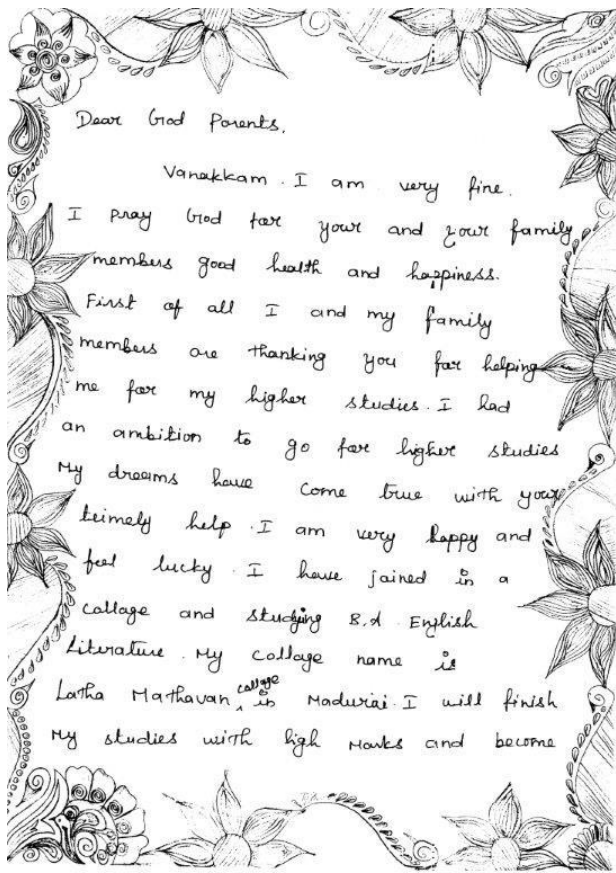 Dear God Parents,
Vanakkam. I am very fine.
I pray God for your and your family
members good health and happiness.
First of all I and my family
members are thanking you for helping
me for my higher studies. I had
an ambition to go for higher studies
My dreams have come true with your
teimely help. I am very happy and
feel lucky. I have joined in a
collage and studying B.A English
Literature. My collage name is
Latha Mathavan collage in Madurai. I will finish
My studies with high Marks and become